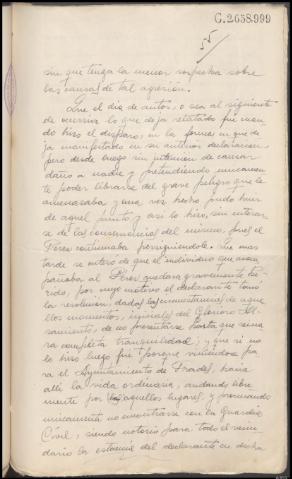 G.2658.999
55
sin que tenga la menor sospecha sobre
las causas de tal agresión.
Que el día de autos, o sea al siguiente
de ocurrir lo que deja relatado fué cuan
do hizo el disparo, en la forma en que de
ja manifestado en su anterior declaración,
pero desde luego sin intención de causar
daño a nadie y pretendiendo unicamen
te poder librarse del grave peligro que le
amenazaba y una vez hecho pudo huir
de aquel punto y así lo hizo, sin enterar
se de las consecuencias del mismo, pues el
Pérez continuaba persiguiéndole. Que mas
tarde se enteró de que el individuo que acom
pañaba al Pérez quedara gravemente he
rido, por cuyo motivo el declarante tomó
la resolución, dadas las circunstancias de aque
llos momentos, iniciales del Glorioso Al
zamiento, de no presentarse hasta que reina
ra completa tranquilidad; y que si no
lo hizo luego fué porque viniéndose pa
ra el Ayuntamiento de Frades, hacía
allí la vida ordinaria, andando libre
mente por aquellos lugares y procurando
unicamente no encontrarse con la Guardia
Civil, siendo notorio para todo el vecin
dario la estancia del declarante en dicha